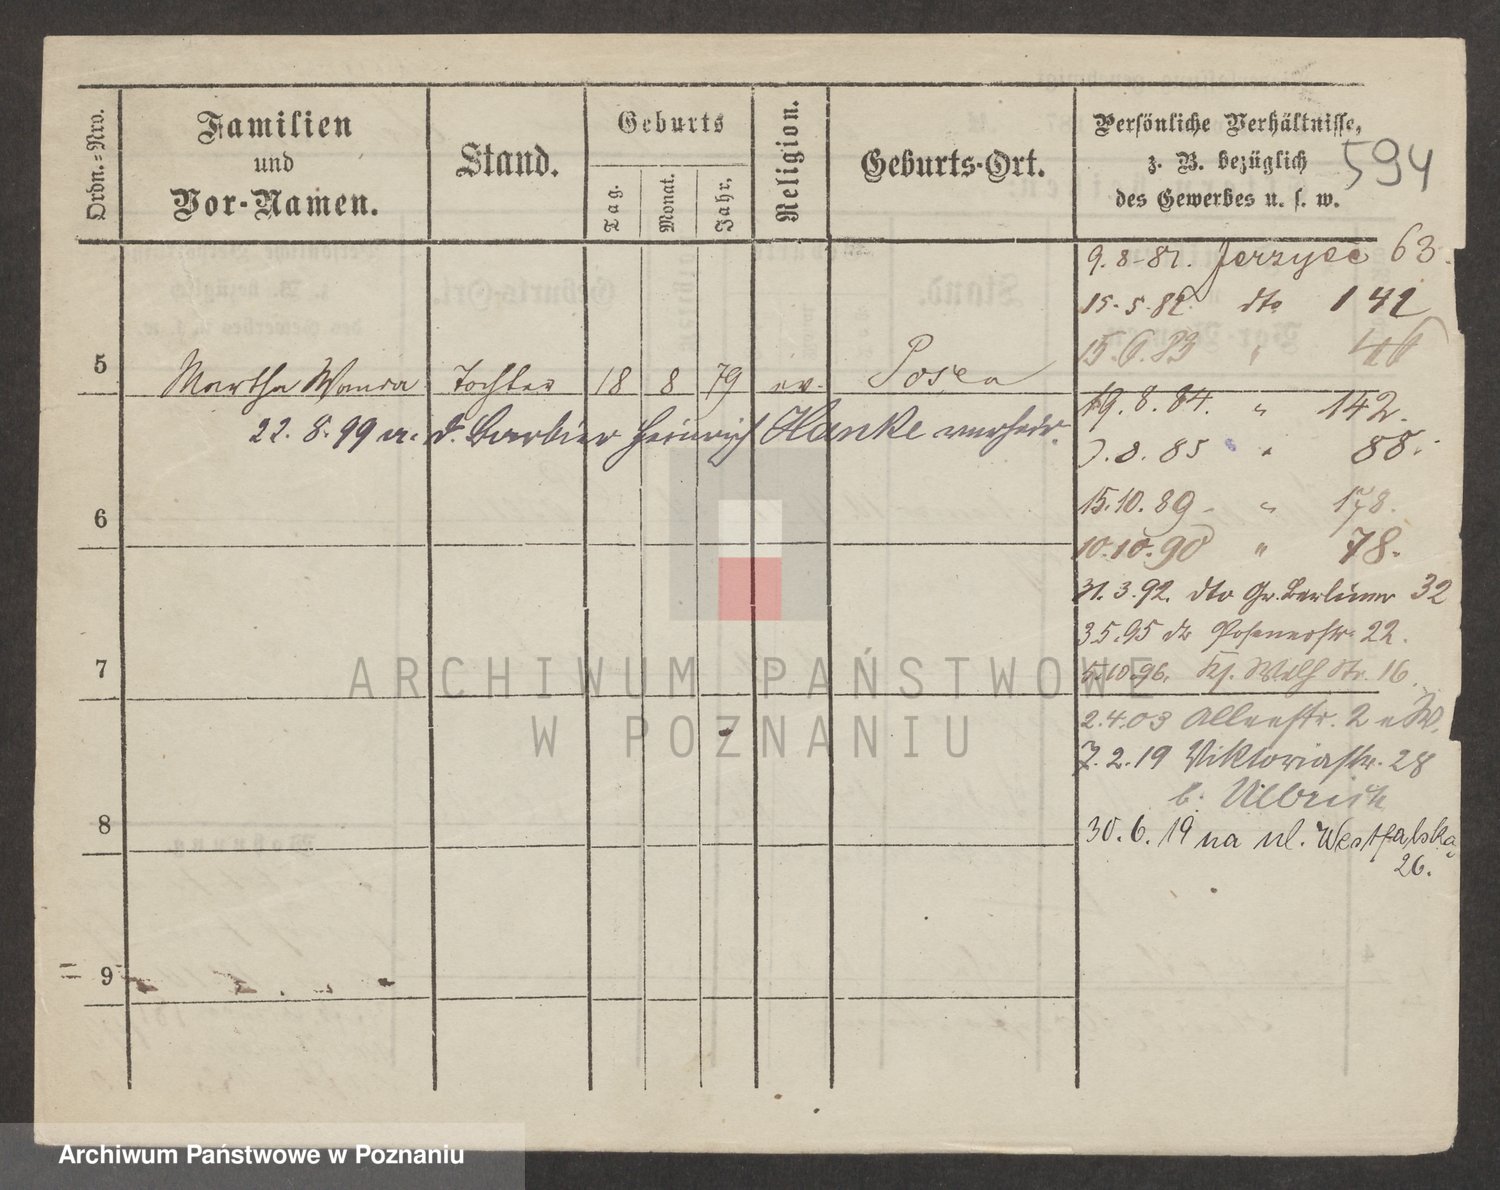 Ordn.=Nro.
Familien
und
Vor-Namen.
Stand.
Geburts
Tag.
Monat.
Jahr.
Religion.
Geburts-Ort.
Persönliche Verhältnisse,
z. B. bezüglich
des Gewerbes u. s. w.
594
9. 8. 81. Jerzyce 63.
15. 5. 82. dto 142
15. 6. 83 " 46
5 Martha Wanda Tochter 18 8 79 ev. Posen
19. 8. 84. " 142.
22. 8. 99 a. d. Barbier Heinrich Hanke verheir.
8. 85 " 88.
6
15. 10. 89 - " 178.
10. 10. 90 " 78.
31. 3. 92. dto Gr. Berliner 32
3 5. 95 dto Posenerstr. 22.
7
5. 10. 96. Kl. Wolf Str. 16.
2. 4. 03 Alleestr. 2
7. 2. 19 Viktoriastr. 28
b. Ullrich
8
30. 6. 19 na ul. Westfalska
26.
9
ARCHIWUM PAŃSTWOWE
W POZNANIU
Archiwum Państwowe w Poznaniu